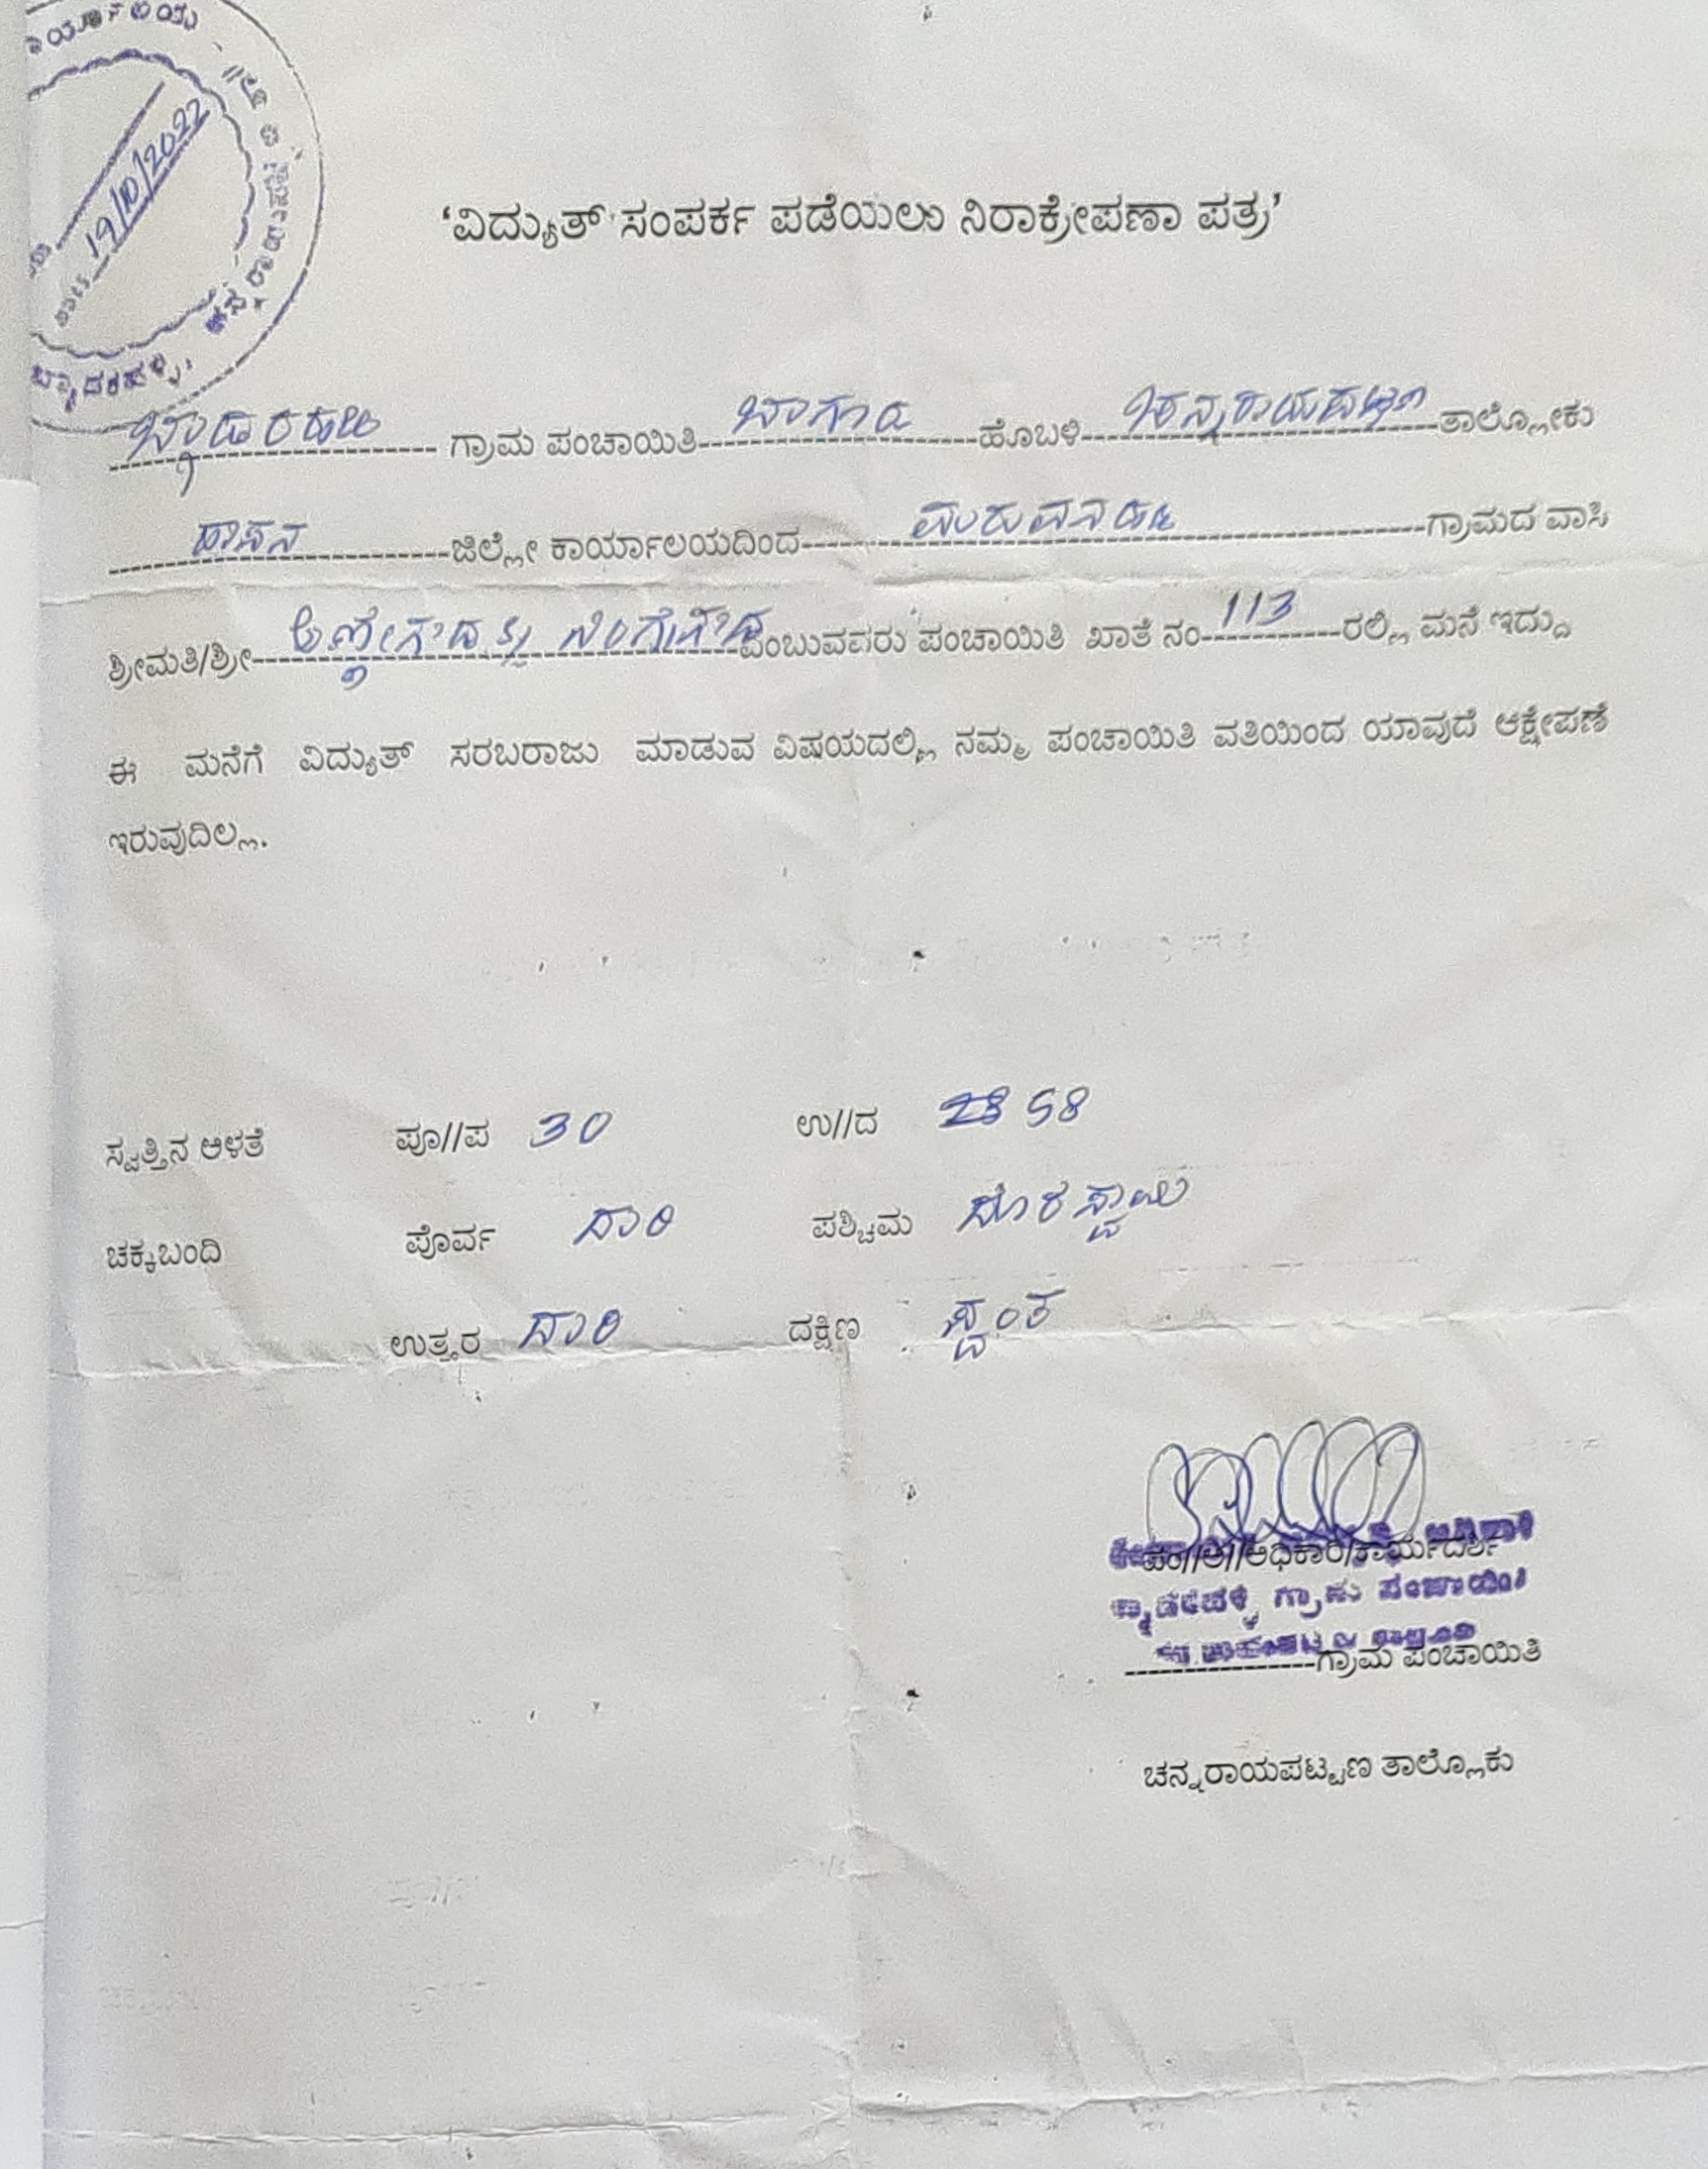 19/10/2022
'ವಿದ್ಯುತ್ ಸಂಪರ್ಕ ಪಡೆಯಲು ನಿರಾಕ್ಷೇಪಣಾ ಪತ್ರ'
ಬ್ಯಾಡರಹಳ್ಳಿ ಗ್ರಾಮ ಪಂಚಾಯಿತಿ ಬಾಗೂರು ಹೊಬಳಿ ಚನ್ನರಾಯಪಟ್ಟಣ ತಾಲ್ಲೋಕು
ಹಾಸನ ಜಿಲ್ಲೇ ಕಾರ್ಯಾಲಯದಿಂದ ಗ್ರಾಮದ ವಾಸಿ
ಶ್ರೀಮತಿ/ಶ್ರೀ ಅಣ್ಣೇಗೌಡ ನಂಗೇಗೌಡ ಎಂಬುವವರು ಪಂಚಾಯಿತಿ ಖಾತೆ ನಂ 113 ರಲ್ಲಿ ಮನೆ ಇದ್ದು
ಈ ಮನೆಗೆ ವಿದ್ಯುತ್ ಸರಬರಾಜು ಮಾಡುವ ವಿಷಯದಲ್ಲಿ ನಮ್ಮ ಪಂಚಾಯಿತಿ ವತಿಯಿಂದ ಯಾವುದೆ ಆಕ್ಷೇಪಣೆ
ಇರುವುದಿಲ್ಲ.
ಸ್ವತ್ತಿನ ಅಳತೆ ಪೂ//ಪ 30 ಉ//ದ 58
ಚಕ್ಕಬಂದಿ ಪೊರ್ವ ದಾರಿ ಪಶ್ಚಿಮ ದೊರಸ್ವಾಮಿ
ಉತ್ತರ ದಾರಿ ದಕ್ಷಿಣ ಸ್ವಂತ
ಪಂ//ಅ//ಅಧಿಕಾರಿ/ಕಾರ್ಯದರ್ಶಿ
ಬ್ಯಾಡರಹಳ್ಳಿ ಗ್ರಾಮ ಪಂಚಾಯಿತಿ
ಗ್ರಾಮ ಪಂಚಾಯಿತಿ
ಚನ್ನರಾಯಪಟ್ಟಣ ತಾಲ್ಲೊಕು